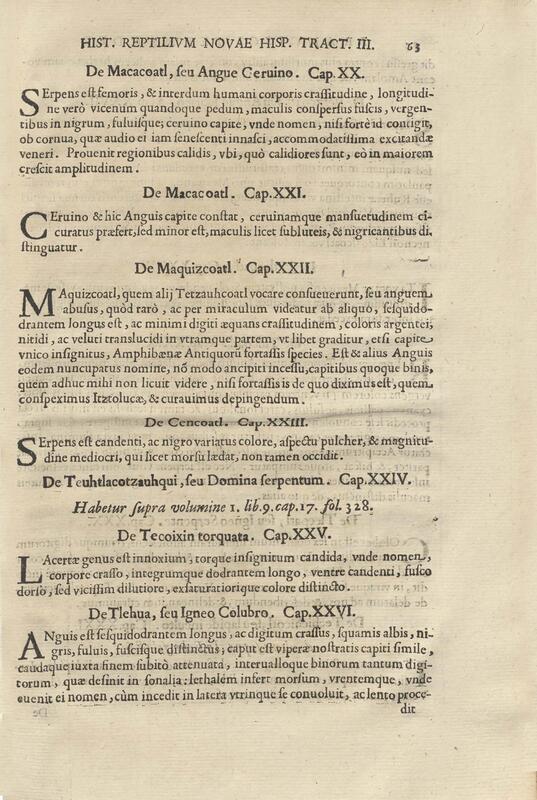 HIST. REPTILIVM NOVAE HISP. TRACT. III. 63
De Macacoatl, seu Angue Ceruino. Cap. XX.
SErpens est femoris, & interdum humani corporis crassitudine, longitudi-
ne verò vicenum quandoque pedum, maculis conspersus fuscis, vergen-
tibus in nigrum, fuluisque; ceruino capite, vnde nomen, nisi fortè id contigit,
ob cornua, quæ audio ei iam senescenti innasci, accommodatissima excitandæ
veneri. Prouenit regionibus calidis, vbi, quò calidiores sunt, eò in maiorem
crescit amplitudinem.
De Macacoatl. Cap. XXI.
CEruino & hic Anguis capite constat, ceruinamque mansuetudinem ci-
curatus præfert, sed minor est, maculis licet subluteis, & nigricantibus di-
stinguatur.
De Maquizcoatl. Cap. XXII.
MAquizcoatl, quem alij Tetzauhcoatl vocare consueuerunt, seu anguem
abusus, quòd rarò, ac per miraculum videatur ab aliquo, sesquido-
drantem longus est, ac minimi digiti æquans crassitudinem, coloris argentei,
nitidi, ac veluti translucidi in vtramque partem, vt libet graditur, etsi capite
vnico insignitus, Amphibænæ Antiquorũ fortassis species. Est & alius Anguis
eodem nuncupatus nomine, nõ modo ancipiti incessu, capitibus quoque binis,
quem adhuc mihi non licuit videre, nisi fortassis is de quo diximus est, quem
conspeximus Itztolucæ, & curauimus depingendum.
De Cencoatl. Cap. XXIII.
SErpens est candenti, ac nigro variatus colore, aspectu pulcher, & magnitu-
dine mediocri, qui licet morsu lædat, non tamen occidit.
De Teuhtlacotzauhqui, seu Domina serpentum. Cap. XXIV.
Habetur supra volumine 1. lib. 9. cap. 17. fol. 328.
De Tecoixin torquata. Cap. XXV.
LAcertæ genus est innoxium, torque insignitum candida, vnde nomen,
corpore crasso, integrumque dodrantem longo, ventre candenti, fusco
dorso, sed vicissim dilutiore, exsaturatiorique colore distincto.
De Tlehua, seu Igneo Colubro. Cap. XXVI.
ANguis est sesquidodrantem longus, ac digitum crassus, squamis albis, ni-
gris, fuluis, fuscisque distinctus; caput est viperæ nostratis capiti simile,
caudaque iuxta finem subitò attenuata, interualloque binorum tantum digi-
torum, quæ definit in sonalia: lethalem infert morsum, vrentemque, vnde
euenit ei nomen, cùm incedit in latera vtrinque se conuoluit, ac lento proce-
dit